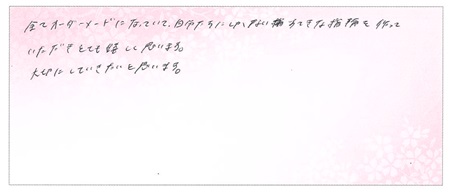 全てオーダーメードになっていて、自分たちにしかない素敵な指輪を作って
いただきとても嬉しく思います。
大切にしていきたいと思います。